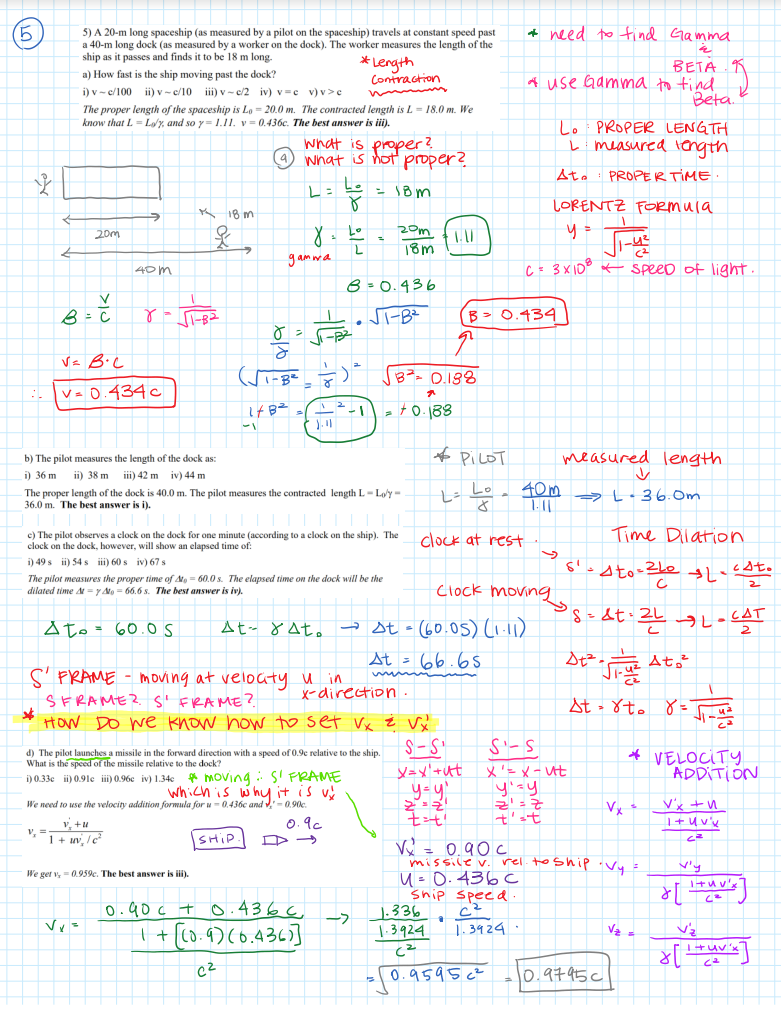 5
5) A 20-m long spaceship (as measured by a pilot on the spaceship) travels at constant speed past
a 40-m long dock (as measured by a worker on the dock). The worker measures the length of the
ship as it passes and finds it to be 18 m long.
a) How fast is the ship moving past the dock?
i) v ~ c/100 ii) v ~ c/10 iii) v ~ c/2 iv) v = c v) v > c
The proper length of the spaceship is L₀ = 20.0 m. The contracted length is L = 18.0 m. We
know that L = L₀/γ, and so γ = 1.11. v = 0.436c. The best answer is iii).
* Length
Contraction
* need to find Gamma
& BETA.
* use Gamma to find
Beta.
L₀ : PROPER LENGTH
L : measured length
Δt₀ : PROPER TIME.
LORENTZ FORMULA
γ = 1 / √(1-u²/c²)
C = 3×10⁸ ← speed of light.
a
What is proper?
What is not proper?
L = L₀/γ = 18m
γ = L₀/L = 20m/18m = 1.11
gamma
B = 0.436
20m
18m
40m
B = V/C γ = 1/√1-B²
γ/γ = 1/√1-B² · √1-B²
B = 0.434
V = B·C
∴ V = 0.434c
(√1-B² = 1/γ)²
√B² = 0.188
1 + B² = 1/1.11² -1 = +0.188
-1
b) The pilot measures the length of the dock as:
i) 36 m ii) 38 m iii) 42 m iv) 44 m
The proper length of the dock is 40.0 m. The pilot measures the contracted length L = L₀/γ =
36.0 m. The best answer is i).
* PILOT measured length
L = L₀/γ = 40m/1.11 ⇒ L = 36.0m
c) The pilot observes a clock on the dock for one minute (according to a clock on the ship). The
clock on the dock, however, will show an elapsed time of:
i) 49 s ii) 54 s iii) 60 s iv) 67 s
The pilot measures the proper time of Δt₀ = 60.0 s. The elapsed time on the dock will be the
dilated time Δt = γ Δt₀ = 66.6 s. The best answer is iv).
Clock at rest.
Time Dilation
S' = Δt₀ = 2L₀/c → L = cΔt₀/2
Clock moving
S = Δt = 2L/c → L = cΔT/2
Δt₀ = 60.0s Δt = γΔt₀ → Δt = (60.0s)(1.11)
Δt = 66.6s
Δt² = 1/√1-u²/c² Δt₀²
Δt = γt₀ γ = 1/√1-u²/c²
S' FRAME - moving at velocity u in
x-direction.
S FRAME? S' FRAME?
* HOW DO we know how to set Vx & Vx'
d) The pilot launches a missile in the forward direction with a speed of 0.9c relative to the ship.
What is the speed of the missile relative to the dock?
i) 0.33c ii) 0.91c iii) 0.96c iv) 1.34c
* moving : S' FRAME
which is why it is Vx'
We need to use the velocity addition formula for u = 0.436c and vₓ' = 0.90c.
vₓ = vₓ' + u / 1 + uvₓ'/c²
We get vₓ = 0.959c. The best answer is iii).
SHIP
0.9c
S-S' S'-S
x=x'+ut x'=x-ut
y=y' y'=y
z=z' z'=z
t=t' t'=t
* VELOCITY
ADDITION
Vx = V'x + u / 1 + uv'x/c²
Vx' = 0.90c
missile v. rel. to ship.
u = 0.436c
ship speed.
Vy = V'y / γ[1+uv'x/c²]
Vz = V'z / γ[1+uv'x/c²]
Vx = 0.90c + 0.436c / 1 + [(0.9)(0.436)]/c² → 1.336/1.3924/c² · c²/1.3924.
= √0.9595c² = 0.9795c